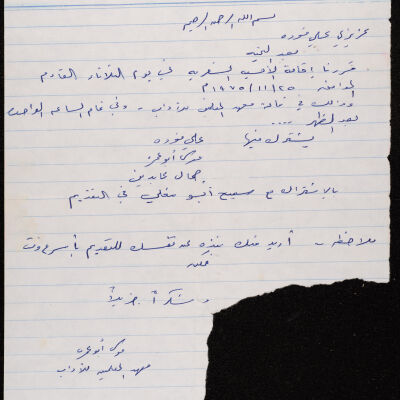 بسم الله الرحمن الرحيم
عزيزي علي فوده
بعد التحية
قررنا إقامة الأمسية الشعرية في يوم الثلاثاء القادم
الموافق ١٩٧٥/١١/٢٥م
وذلك في قاعة معهد المعلمين للآداب - وفي تمام الساعة الواحدة
بعد الظهر ....
يشترك فيها علي فوده
موسى أبو غره
جمال عابدين
بالاشتراك مع سميح أبو مغلي في التقديم
ملاحظة - أريد منك نبذه عن نفسك للتقديم بأسرع وقت
ممكن
وشكراً جزيلاً
موسى أبو غره
معهد المعلمين للآداب